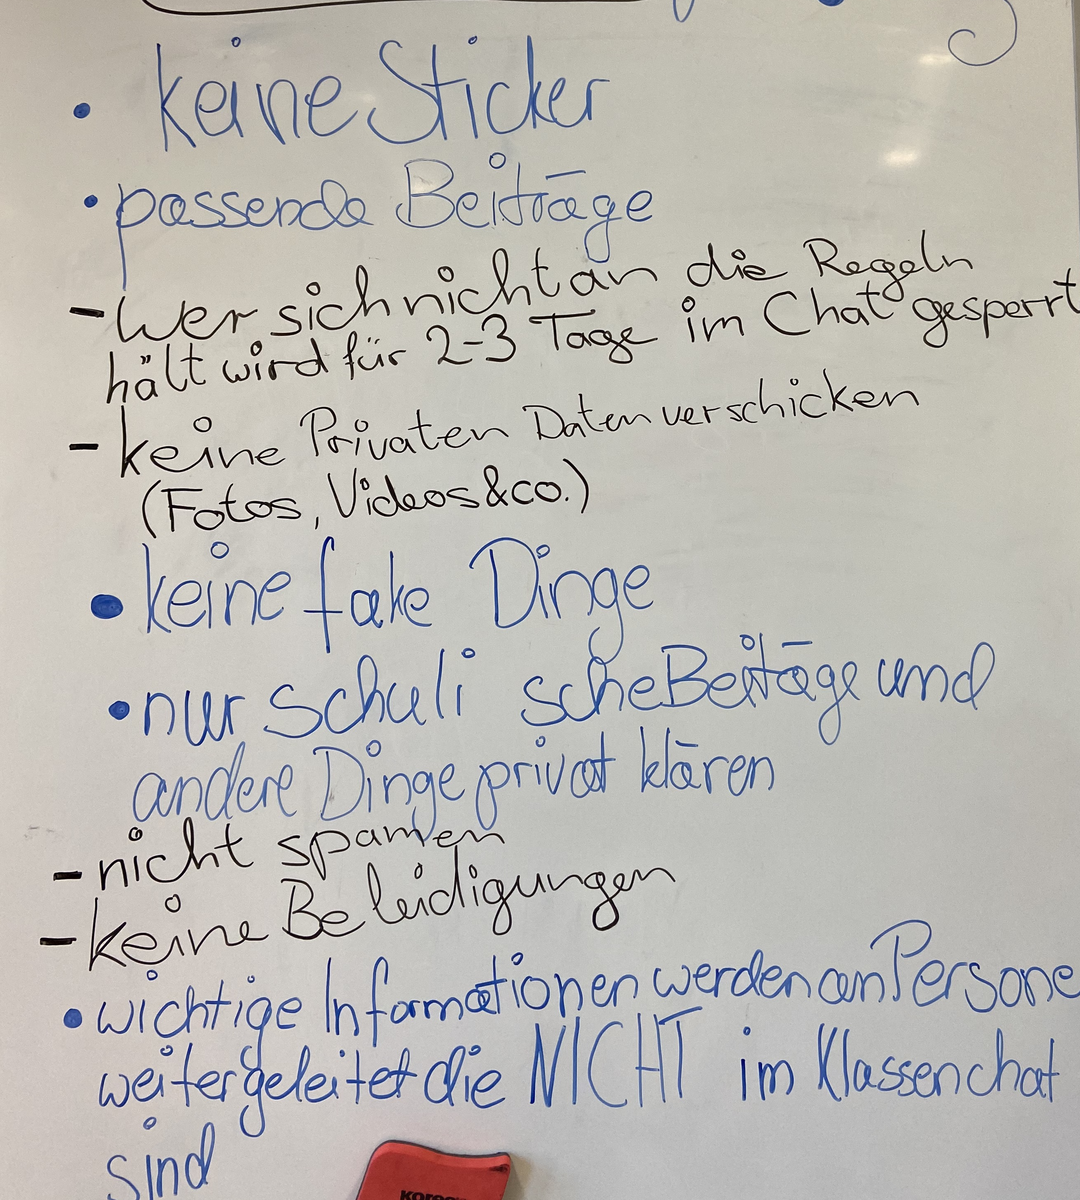 • keine Sticker
• passende Beiträge
- Wer sich nicht an die Regeln
hält wird für 2-3 Tage im Chat gesperrt
- keine Privaten Daten verschicken
(Fotos, Videos & co.)
• keine fake Dinge
• nur schulische Beitäge und
andere Dinge privat klären
- nicht spamen
- keine Beleidigungen
• wichtige Informationen werden an Persone
weitergeleitet die NICHT im Klassenchat
sind